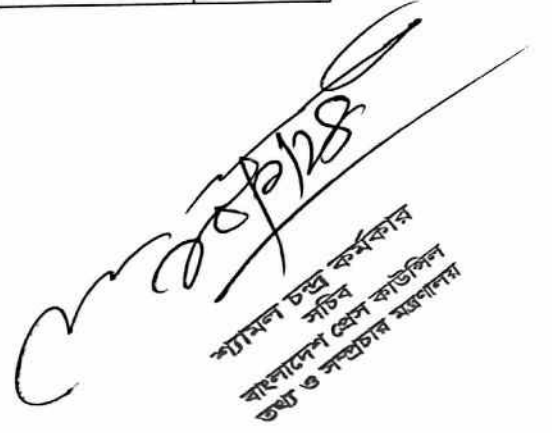 শ্যামল চন্দ্র কর্মকার
সচিব
বাংলাদেশ প্রেস কাউন্সিল
তথ্য ও সম্প্রচার মন্ত্রণালয়